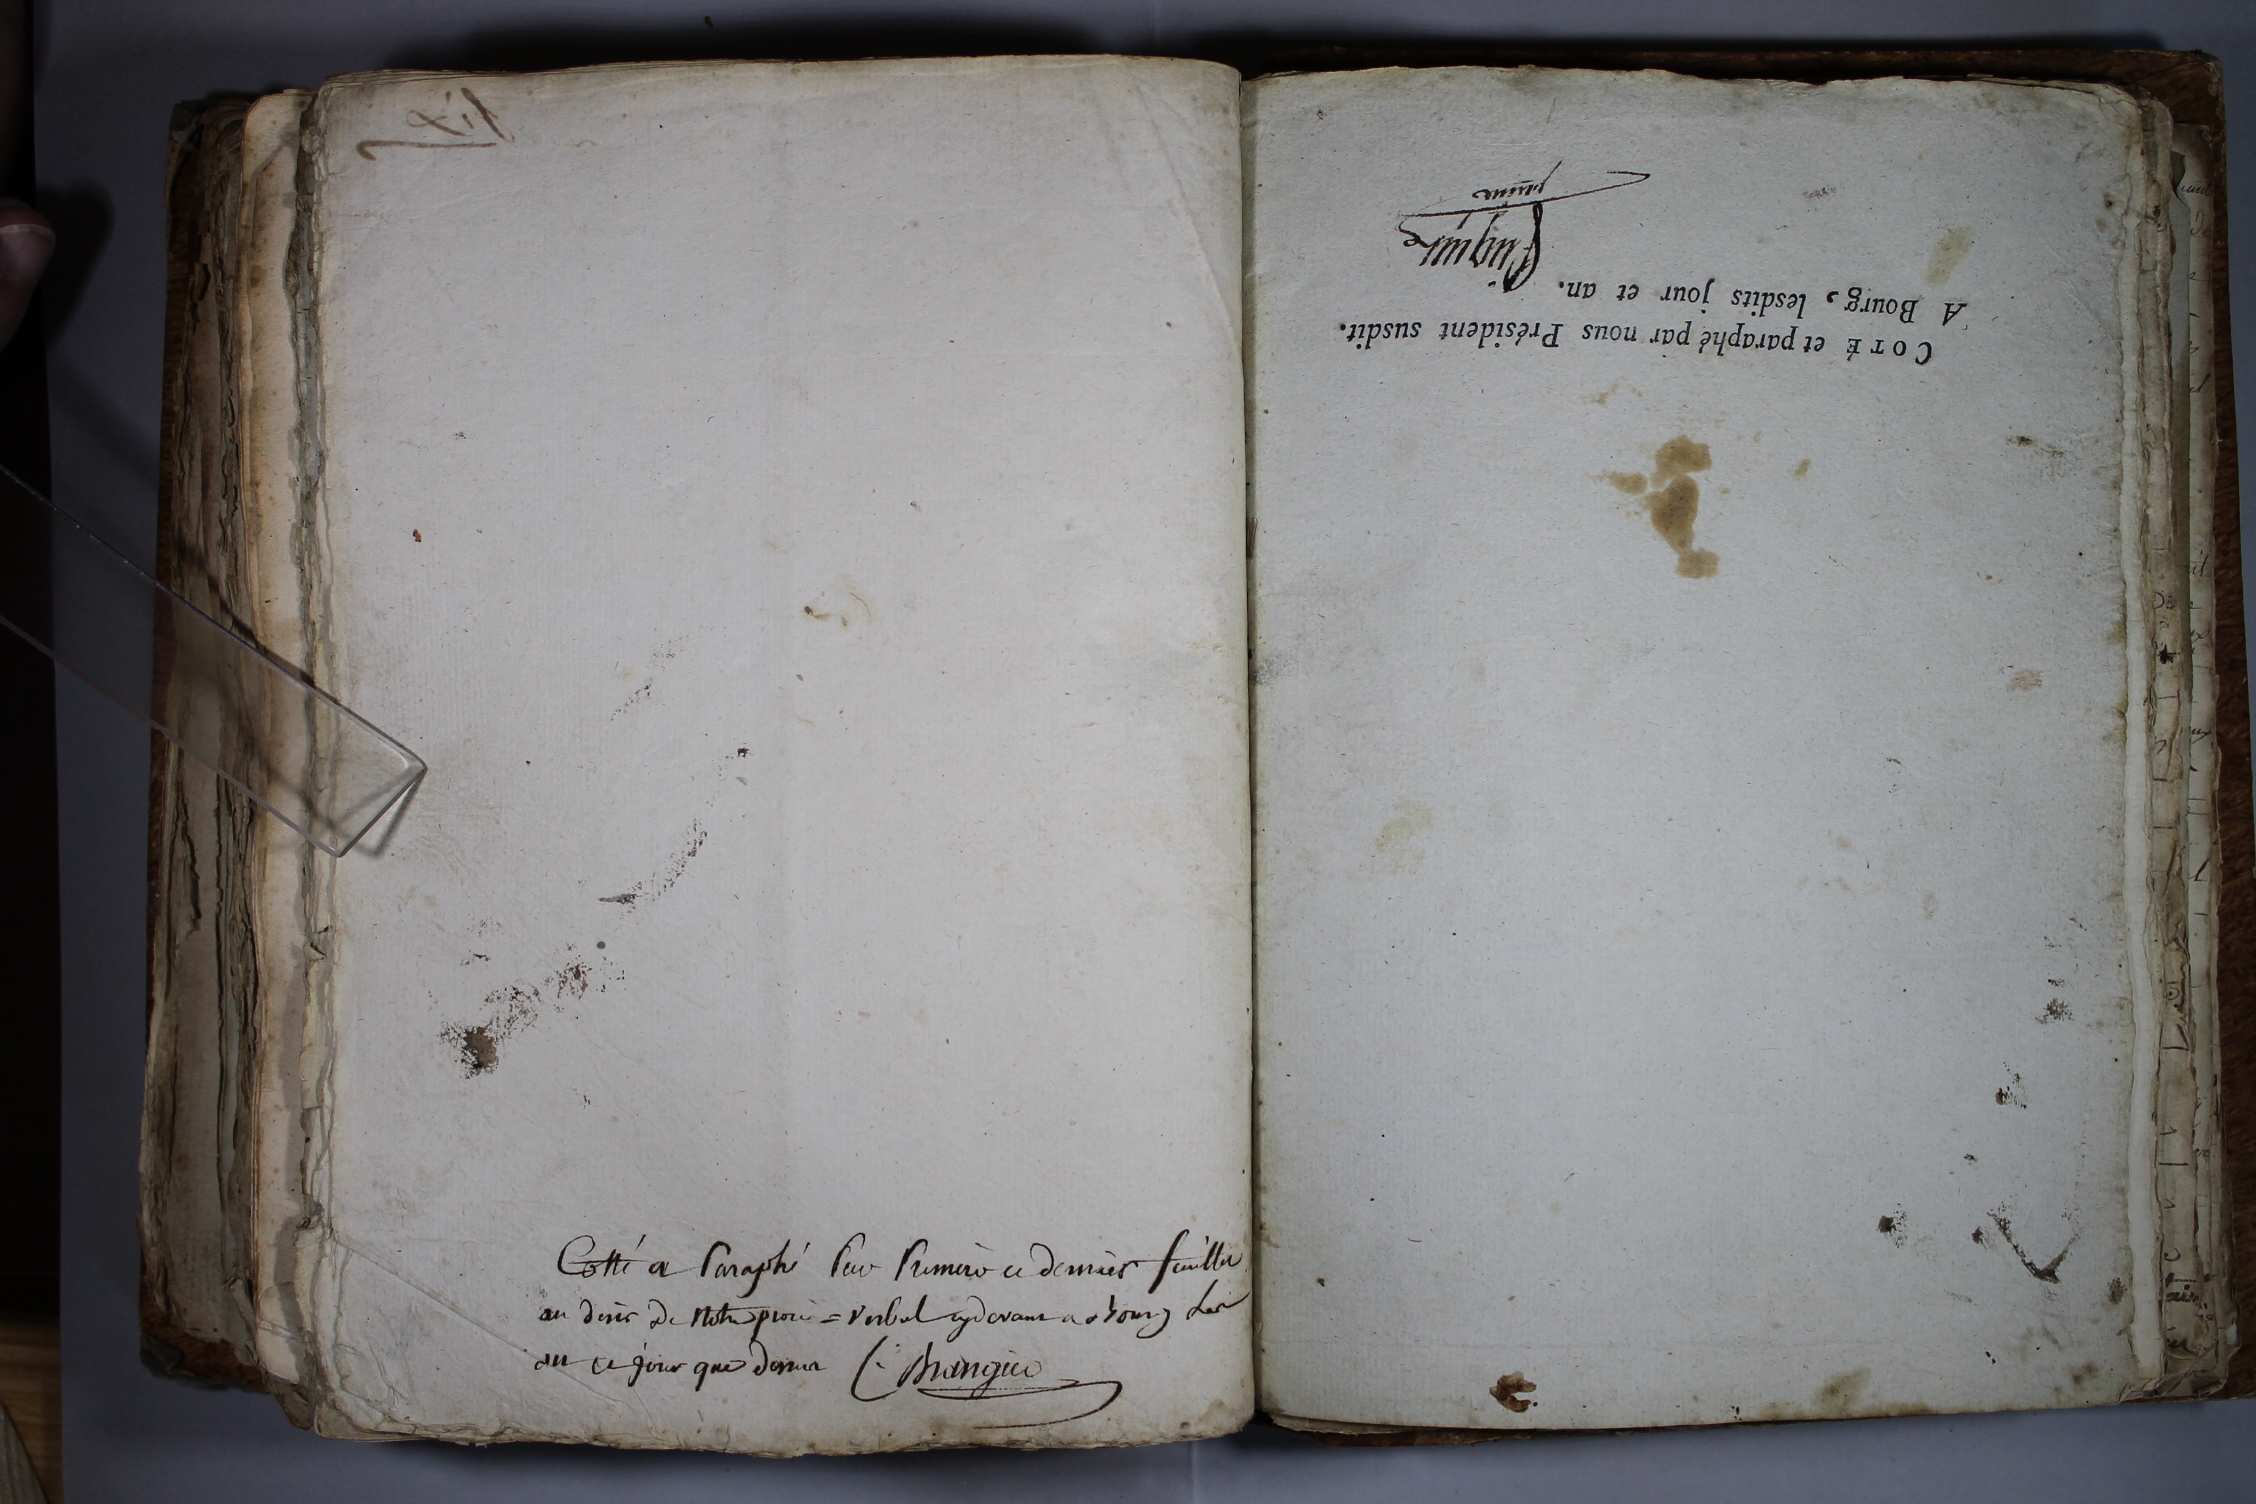 six
Cotté et Paraphé Par Premiere et derniere feuillet
au desir de Notre procès = verbal cydevant a Bourg les
an et jour que dessus C. Brangier
COTÉ et paraphé par nous Président susdit.
A Bourg, lesdits jour et an.